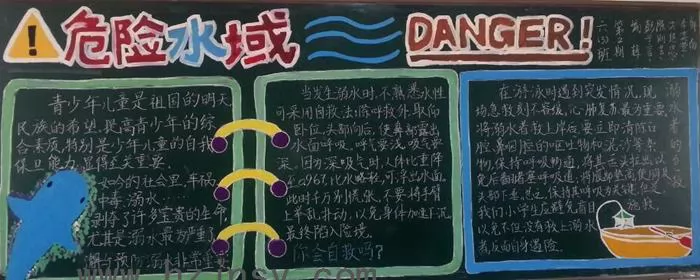 危险水域 DANGER!
六(3)班
第2期
青少年儿童是祖国的明天
民族的希望,提高青少年的综
合素质,特别是少年儿童的自我
保卫能力,显得至关重要
如今的社会里,车祸
中毒、溺水
剥夺了许多宝贵的生命,
尤其是溺水最为严重
当发生溺水时,不熟悉水性
可采用自救法:除呼救外,取仰
卧位,头部向后,使鼻部露出
水面呼吸。呼气要浅,吸气要
深。因为深吸气时,人体比重降
到0.967,比水略轻,可浮出水面
此时千万别慌张,不要将手臂
上举乱扑动,以免身体加速下沉
最终陷入险境。
你会自救吗?
在游泳时遇到突发情况,现
场急救刻不容缓,心肺复苏最为重要
将溺水者救上岸后,要立即清除口
腔、鼻咽腔的呕吐物和泥沙等杂
物,保持呼吸畅通;将其舌头拉出,以
免后翻堵塞呼吸道;将腹部垫高使胸及
头部下垂
我们小学生应避免盲目施救
以免不但没有救上溺水
者,反而自身遇险。
溺水的救援
www.bzjnsy.com